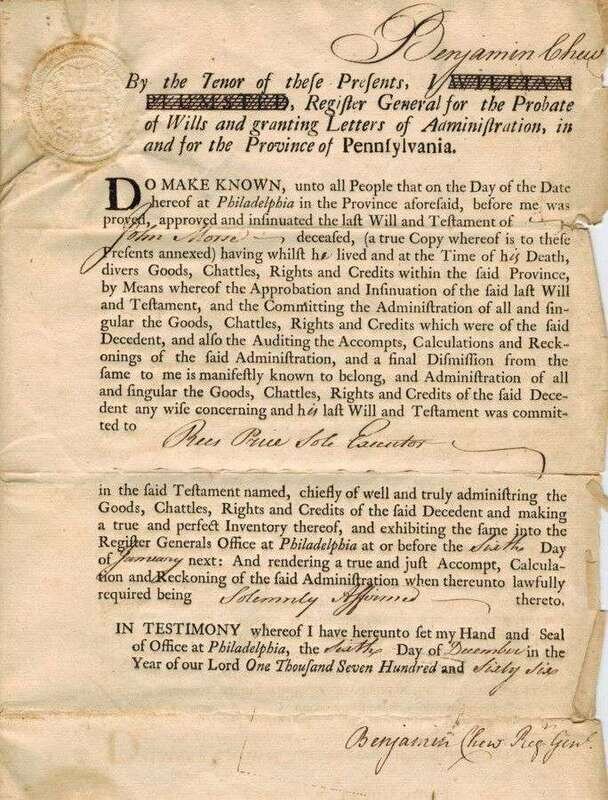 Benjamin Chew
By the Tenor of theſe Preſents, I WILLIAM
PLUMSTED, Regiſter General for the Probate
of Wills and granting Letters of Adminiſtration, in
and for the Province of Pennſylvania.
DO MAKE KNOWN, unto all People that on the Day of the Date
hereof at Philadelphia in the Province aforeſaid, before me was
proved, approved and inſinuated the laſt Will and Teſtament of
John Morse deceaſed, (a true Copy whereof is to theſe
Preſents annexed) having whilſt he lived and at the Time of his Death,
divers Goods, Chattles, Rights and Credits within the ſaid Province,
by Means whereof the Approbation and Inſinuation of the ſaid laſt Will
and Teſtament, and the Committing the Adminiſtration of all and ſin-
gular the Goods, Chattles, Rights and Credits which were of the ſaid
Decedent, and alſo the Auditing the Accompts, Calculations and Reck-
onings of the ſaid Adminiſtration, and a final Diſmiſſion from the
ſame to me is manifeſtly known to belong, and Adminiſtration of all
and ſingular the Goods, Chattles, Rights and Credits of the ſaid Dece-
dent any wiſe concerning and his laſt Will and Teſtament was commit-
ted to
Rees Price Sole Executor
in the ſaid Teſtament named, chiefly of well and truly adminiſtring the
Goods, Chattles, Rights and Credits of the ſaid Decedent and making
a true and perfect Inventory thereof, and exhibiting the ſame into the
Regiſter Generals Office at Philadelphia at or before the Sixth Day
of January next: And rendering a true and juſt Accompt, Calcula-
tion and Reckoning of the ſaid Adminiſtration when thereunto lawfully
required being Solemnly Affirmed thereto.
IN TESTIMONY whereof I have hereunto ſet my Hand and Seal
of Office at Philadelphia, the Sixth Day of December in the
Year of our Lord One Thouſand Seven Hundred and Sixty Six
Benjamin Chew Reg. Genl.